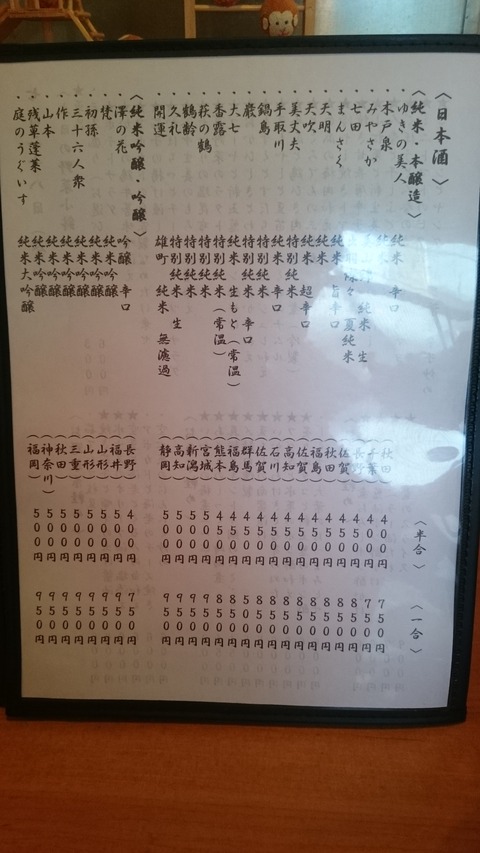 〈日本酒〉
〈純米・本醸造〉 〈半合〉 〈一合〉
・ゆきの美人 純米 辛口 (秋田) 400円 750円
・木戸泉 (千葉) 400円 750円
・みやさか 純米 生 (長野) 850円
・七田 夏純米 (佐賀) 450円 850円
・まんさく 旨辛口 (秋田) 450円 850円
・天明 純米 (福島) 450円 850円
・天吹 純米 超辛口 (佐賀) 450円 850円
・美丈夫 特別純米 (高知) 450円 850円
・手取川 純米 辛口 (石川) 450円 850円
・鍋島 特別純米 (佐賀) 450円 850円
・巌 特別純米 辛口 (群馬) 450円
・大七 純米 生もと(常温) (福島) 450円 850円
・香露 特別純米(常温) (熊本) 450円 850円
・萩の鶴 特別純米 (宮城) 500円 950円
・鶴齢 特別純米 (新潟) 500円 950円
・久礼 特別純米 生 (高知) 500円 950円
・開運 雄町 純米 無濾過 (静岡) 500円 950円
〈純米吟醸・吟醸〉
・澤の花 吟醸 辛口 (長野) 400円 750円
・梵 純米吟醸 (福井) 500円 950円
・初孫 純米吟醸 (山形) 500円 950円
・三十六人衆 純米吟醸 (山形) 500円 950円
・作 純米吟醸 (三重) 500円 950円
・山本 純米吟醸 (秋田) 500円 950円
・残草蓬莱 純米吟醸 (神奈川) 500円 950円
・庭のうぐいす 純米大吟醸 (福岡) 500円 950円